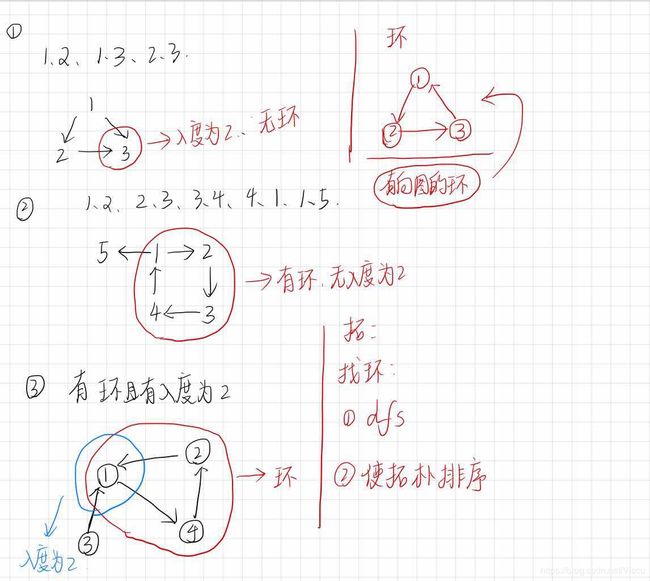 ①
1.2、1.3、2.3.
1
2
3
入度为2、无环
环
①
②
③
有向图的环
②
1.2、2.3、3.4、4.1、1.5.
5
1
2
4
3
有环.无入度为2
③ 有环且有入度为2
①
②
③
④
环
入度为2
拓:
找环:
① dfs
② 使拓朴排序